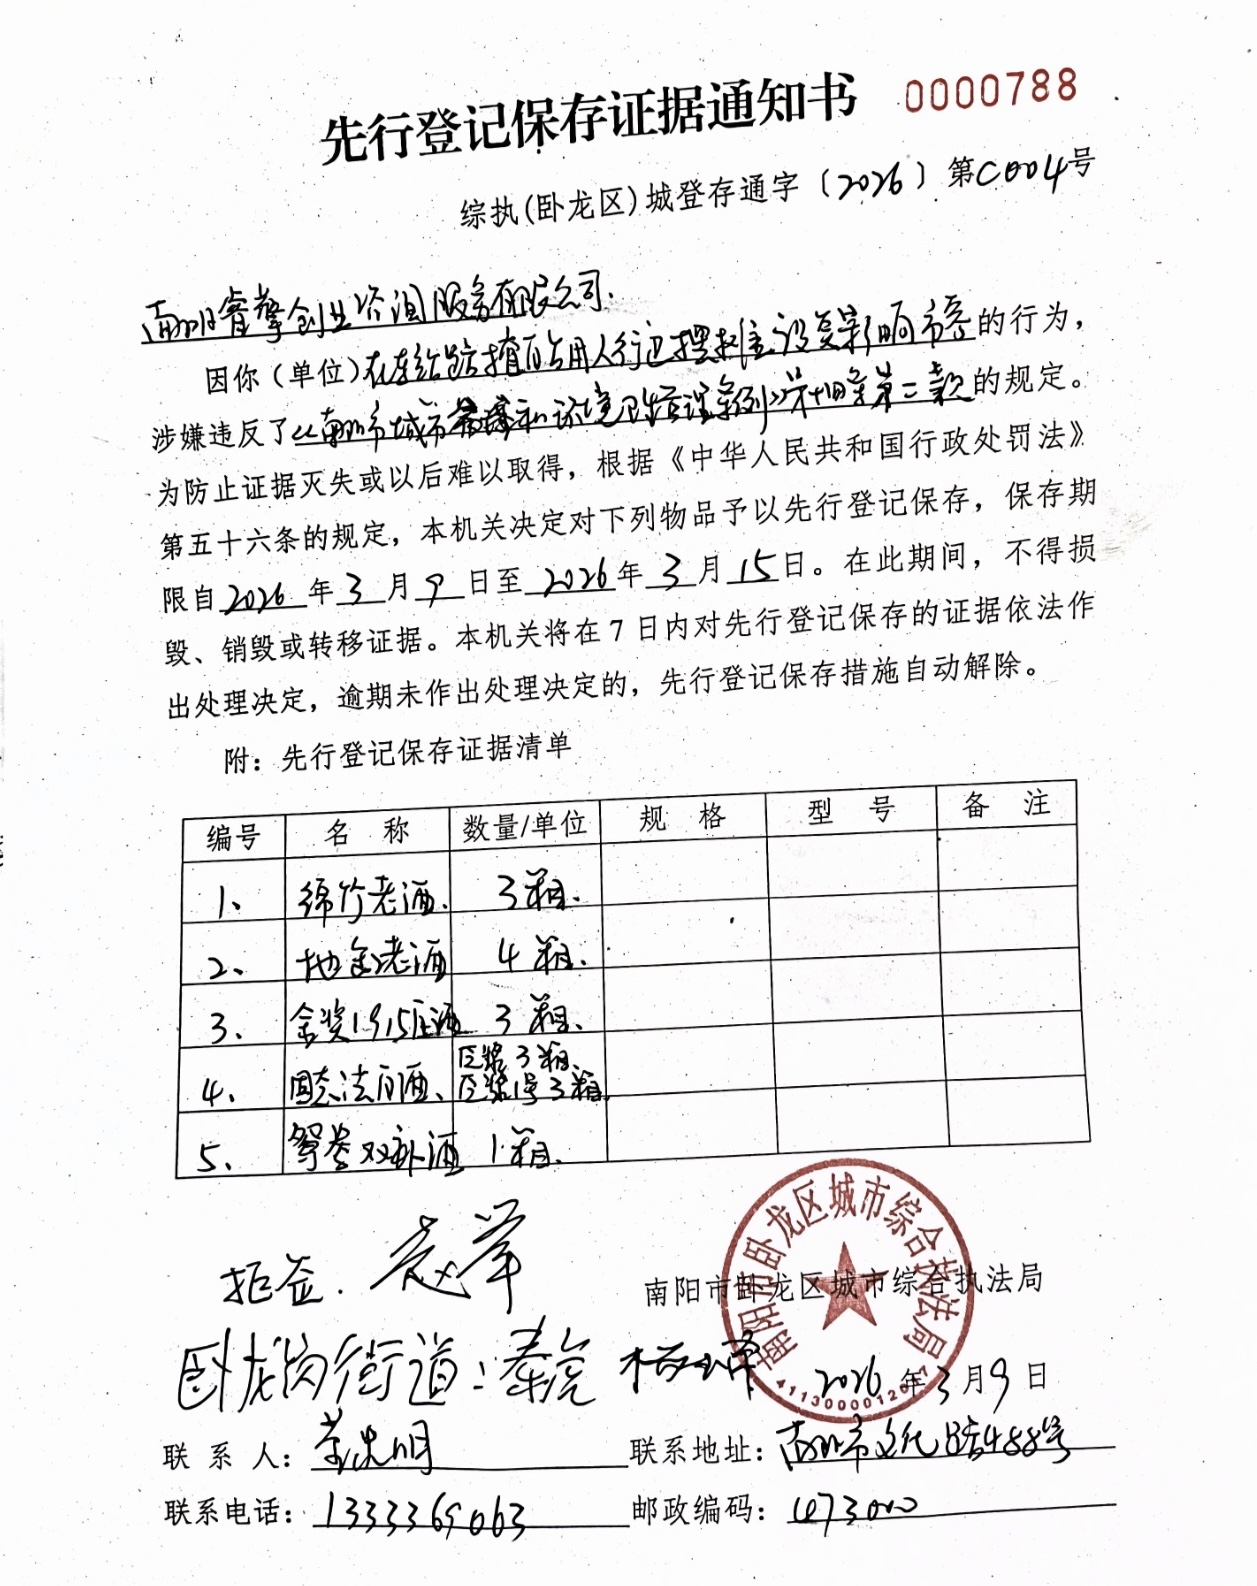 先行登记保存证据通知书 0000788
综执(卧龙区)城登存通字〔2026〕第C004号
南阳睿擎创业咨询服务有限公司.
因你（单位）在车站路擅自占用人行道摆摊设点影响市容的行为，
涉嫌违反了《南阳市城市市容和环境卫生管理条例》第十四条第二款的规定。
为防止证据灭失或以后难以取得，根据《中华人民共和国行政处罚法》
第五十六条的规定，本机关决定对下列物品予以先行登记保存，保存期
限自2026年3月9日至2026年3月15日。在此期间，不得损
毁、销毁或转移证据。本机关将在7日内对先行登记保存的证据依法作
出处理决定，逾期未作出处理决定的，先行登记保存措施自动解除。
附：先行登记保存证据清单
编号 名 称 数量/单位 规 格 型 号 备 注
1、 绵竹老酒. 3箱.
2、 地窖老酒 4箱.
3、 金奖1915庄酒 3箱.
4、 固态法白酒、 匠酱3箱. 匠酱1号3箱.
5、 双补酒 1箱.
拒签.
南阳市卧龙区城市综合执法局
南阳市卧龙区城市综合执法局
卧龙岗街道：秦亮
2026年3月9日
联 系 人： 联系地址：南阳市文化路488号
联系电话：1333369063 邮政编码：473000